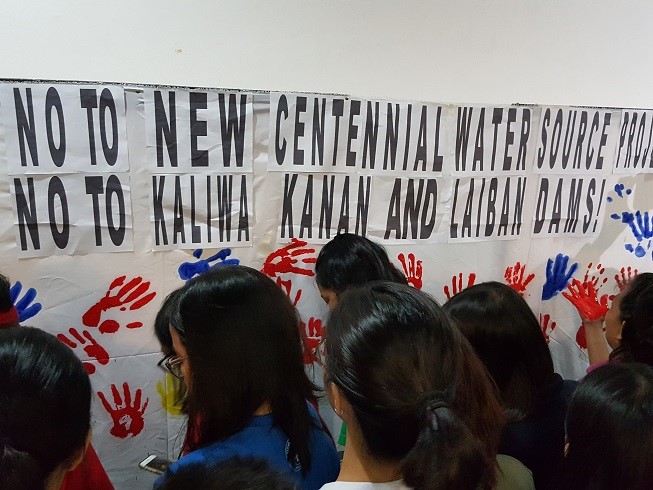 NO TO NEW CENTENNIAL WATER SOURCE PROJE
NO TO KALIWA KANAN AND LAIBAN DAMS!